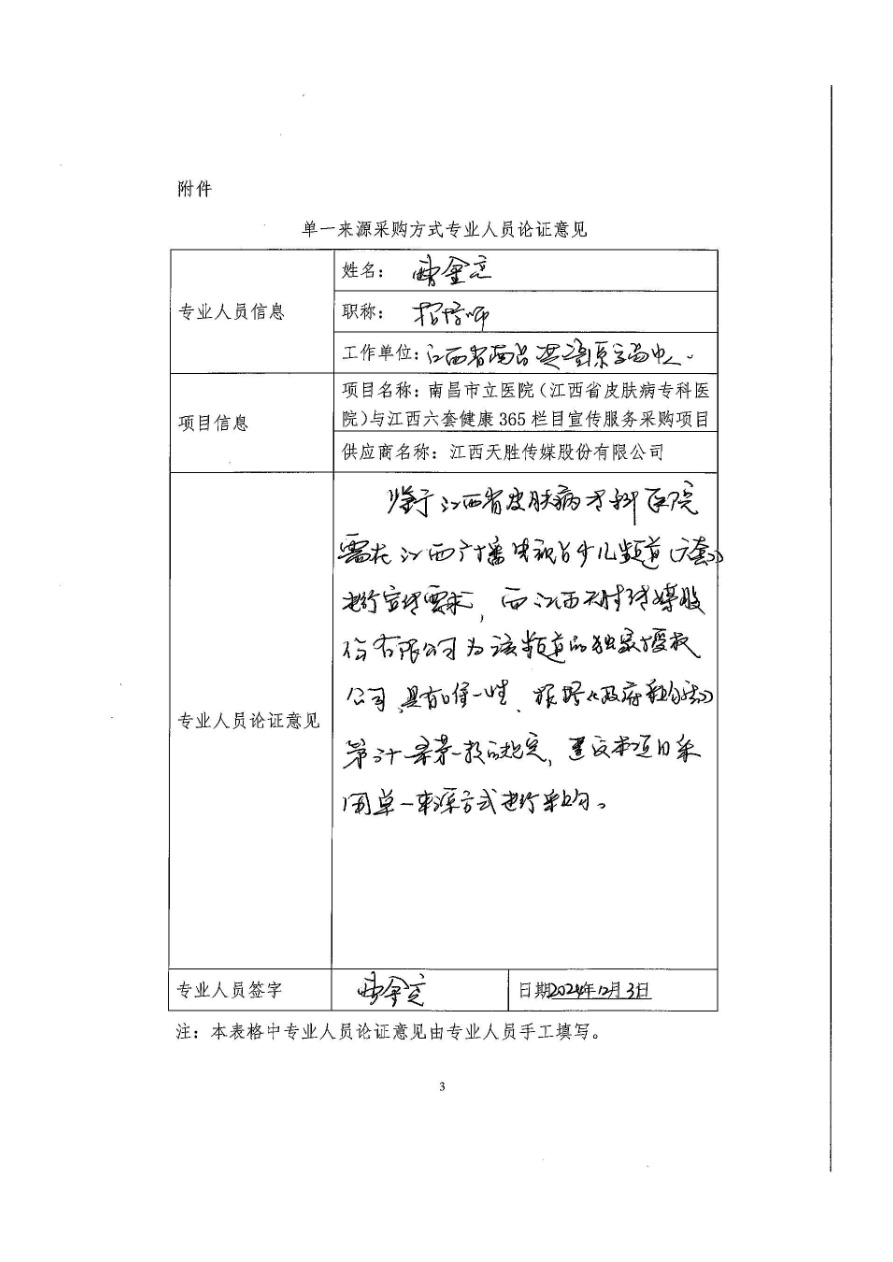 附件
单一来源采购方式专业人员论证意见
专业人员信息
姓名：
职称：
工作单位：江西省南昌
项目信息
项目名称：南昌市立医院（江西省皮肤病专科医
院）与江西六套健康 365 栏目宣传服务采购项目
供应商名称：江西天胜传媒股份有限公司
专业人员论证意见
鉴于江西省皮肤病专科医院
需在江西广播电视台少儿频道（六套）
进行宣传需求，而江西天胜传媒股
份有限公司为该频道的独家授权
公司，具有唯一性，根据《政府采购法》
第三十一条第一款的规定，建议本项目采
用单一来源方式进行采购。
专业人员签字
日期2024年12月3日
注：本表格中专业人员论证意见由专业人员手工填写。
3